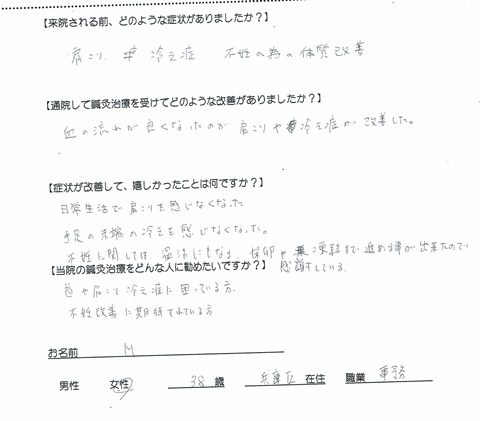 【来院される前、どのような症状がありましたか？】
肩こり 冷え症 不妊の為の体質改善
【通院して鍼灸治療を受けてどのような改善がありましたか？】
血の流れが良くなったのか 肩こりや冷え症が改善した。
【症状が改善して、嬉しかったことは何ですか？】
日常生活で肩こりを感じなくなった
手足の末端の冷えを感じなくなった。
不妊に関しては、妊活にもなり、採卵や凍結まで進める事が出来たので
感謝している。
【当院の鍼灸治療をどんな人に勧めたいですか？】
首や肩こり 冷え症に困っている方、
不妊改善に期待されている方
お名前 M
男性 女性 38 歳 兵庫区 在住 職業 事務